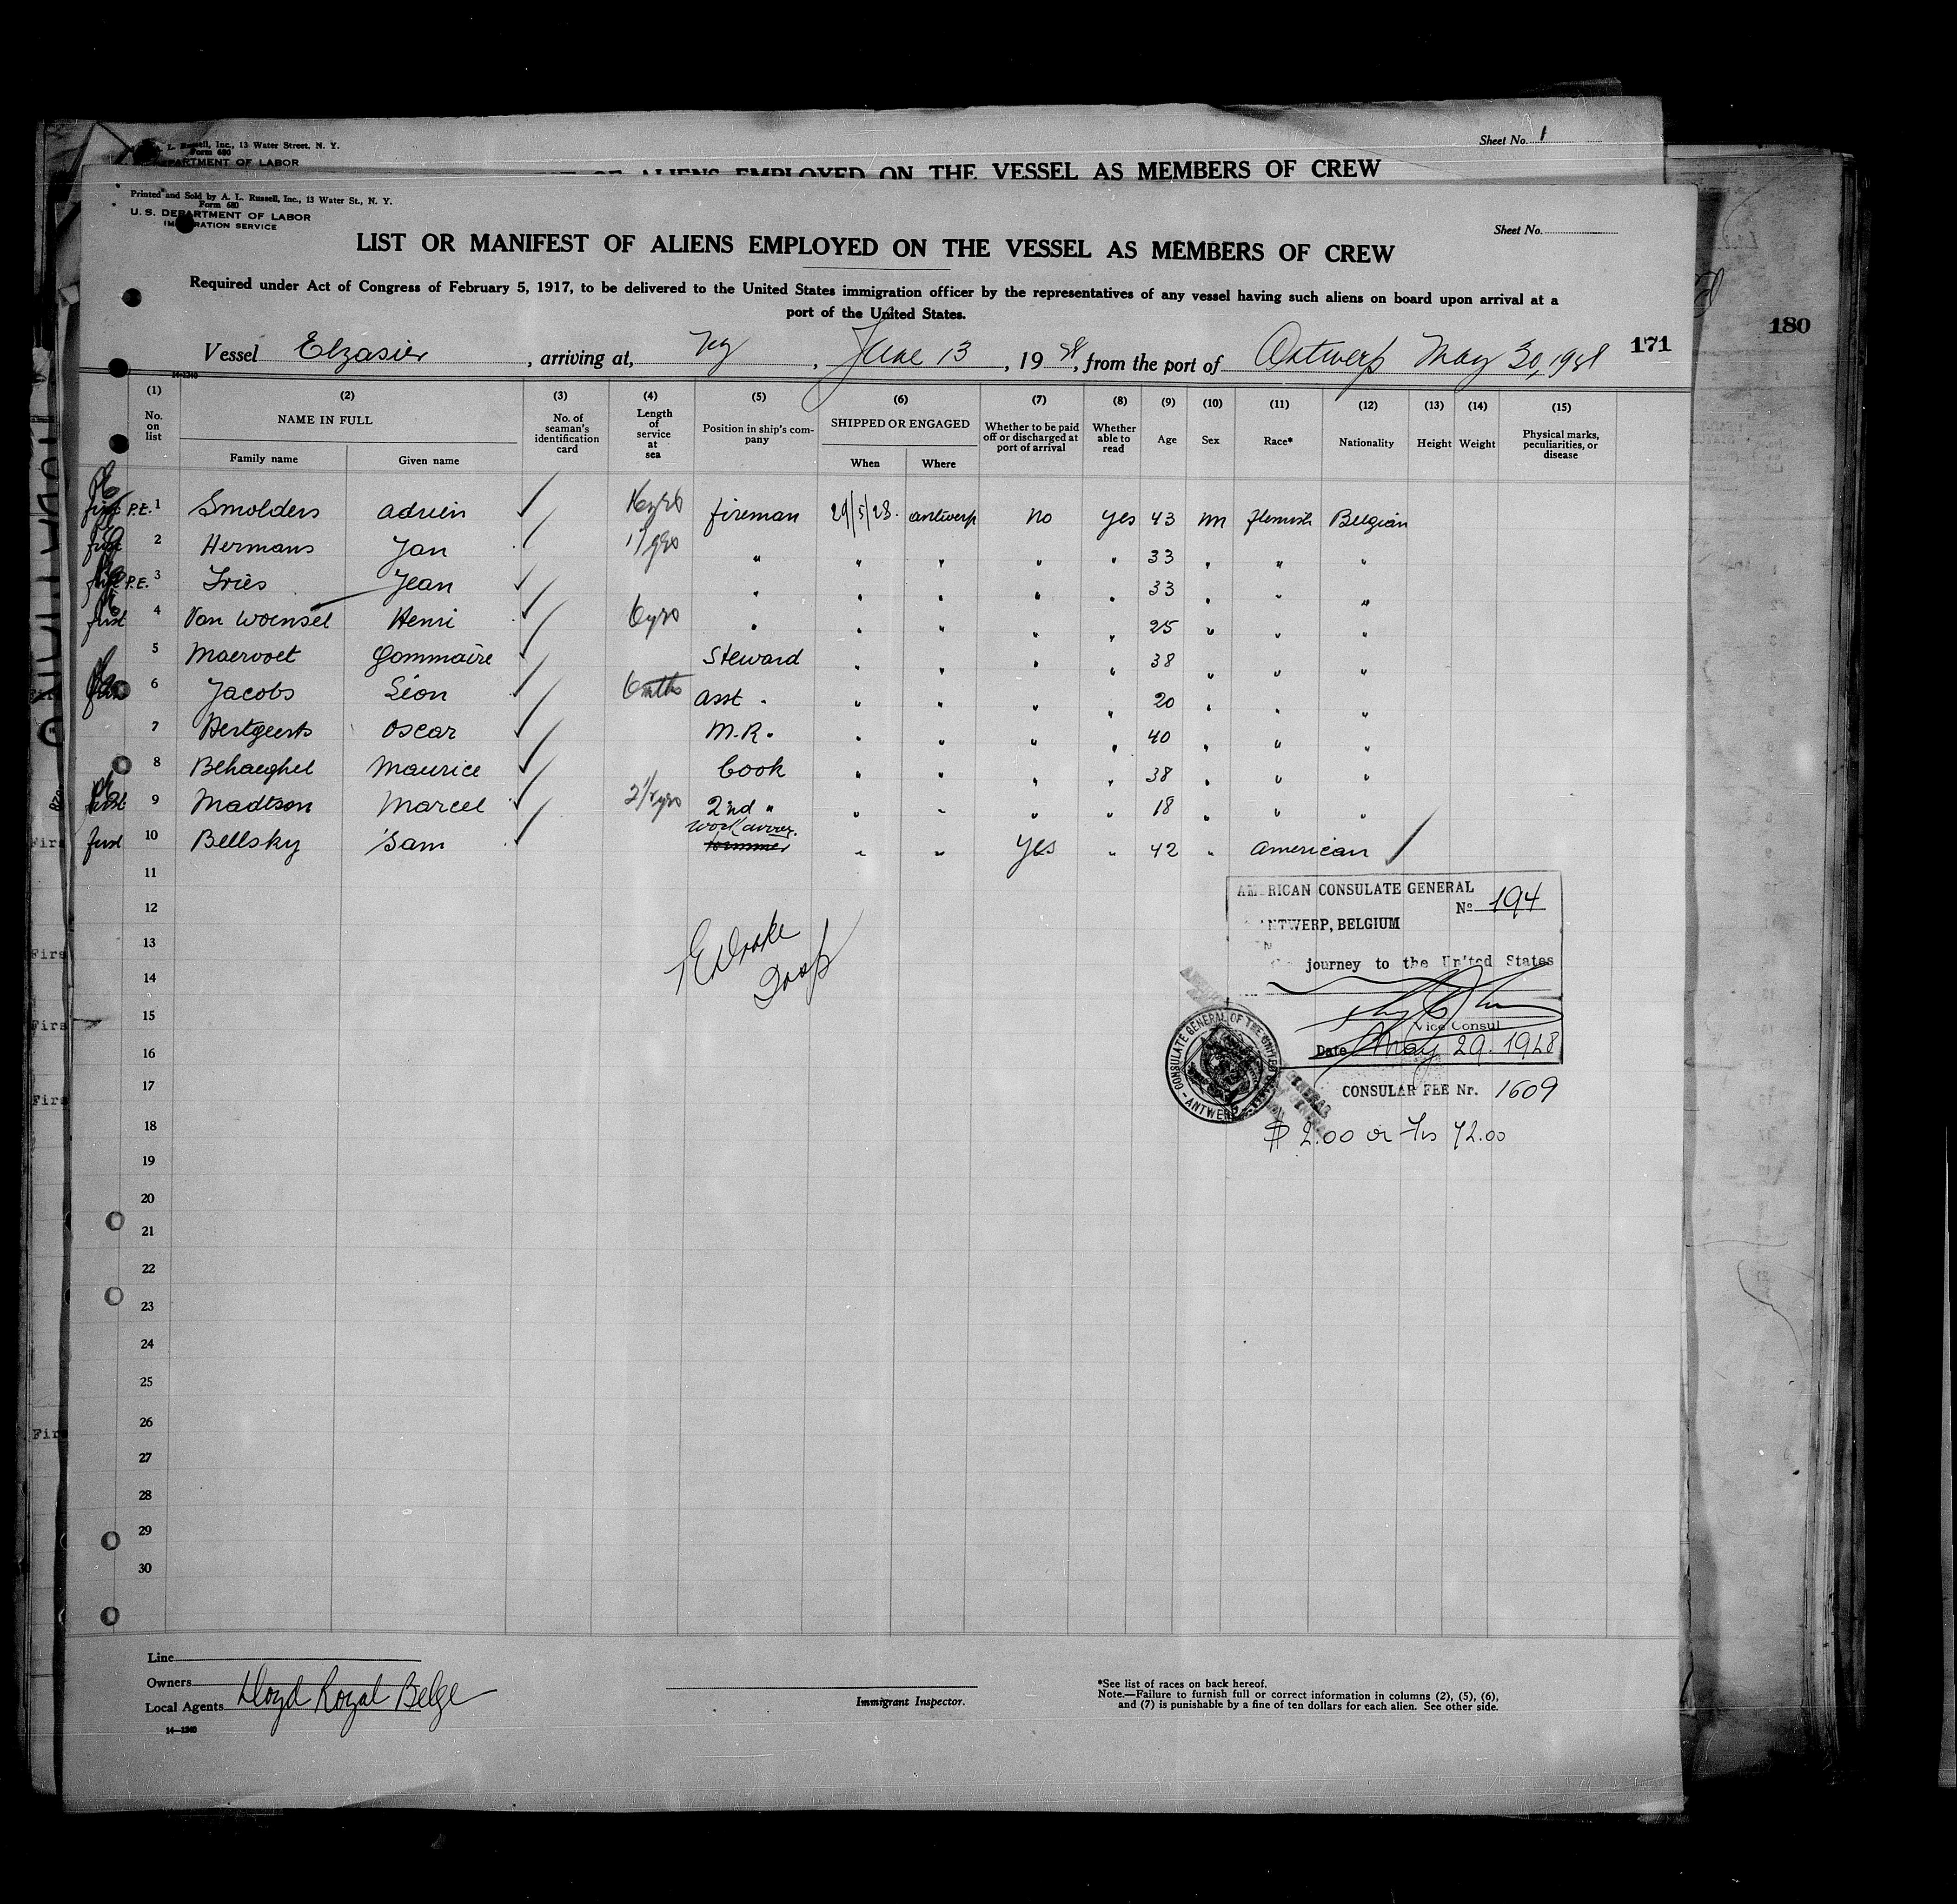 L. Russell, Inc., 13 Water Street, N. Y.
Form 680
DEPARTMENT OF LABOR
Sheet No. 1
OF ALIENS EMPLOYED ON THE VESSEL AS MEMBERS OF CREW
180
Printed and Sold by A. L. Russell, Inc., 13 Water St., N. Y.
Form 680
U. S. DEPARTMENT OF LABOR
IMMIGRATION SERVICE
Sheet No.
LIST OR MANIFEST OF ALIENS EMPLOYED ON THE VESSEL AS MEMBERS OF CREW
Required under Act of Congress of February 5, 1917, to be delivered to the United States immigration officer by the representatives of any vessel having such aliens on board upon arrival at a
port of the United States.
171
Vessel Elzasier, arriving at, Ny, June 13, 1928, from the port of Antwerp May 30, 1928
14-1240
(1) (2) (3) (4) (5) (6) (7) (8) (9) (10) (11) (12) (13) (14) (15)
No. on list NAME IN FULL No. of seaman's identification card Length of service at sea Position in ship's company SHIPPED OR ENGAGED Whether to be paid off or discharged at port of arrival Whether able to read Age Sex Race* Nationality Height Weight Physical marks, peculiarities, or disease
Family name Given name When Where
first P.E. 1 Smolders Adrien 16 yrs fireman 29/5/28. Antwerp no yes 43 m Flemish Belgian
first 2 Hermans Jan 17 yrs " " " " " 33 " " "
P.E. 3 Fries Jean " " " " " 33 " " "
first 4 Van Woensel Henri 6 yrs " " " " " 25 " " "
5 Maervoet Gommaire Steward " " " " 38 " " "
6 Jacobs Léon 6 mths asst " " " " " 20 " " "
7 Bertgeerts Oscar M.R. " " " " 40 " " "
8 Behaeghel Maurice Cook " " " " 38 " " "
first 9 Madtson Marcel 2 1/2 yrs 2nd " " " " " 18 " " "
first 10 Bellsky Sam workawoy. trimmer " " yes " 42 " American
11
12
13
14
15
16
17
18
19
20
21
22
23
24
25
26
27
28
29
30
AMERICAN CONSULATE GENERAL
No 194
ANTWERP, BELGIUM
journey to the United States
Vice Consul
Date May 29. 1928
CONSULATE GENERAL OF THE UNITED
ANTWERP
CONSULAR FEE Nr. 1609
$ 2.00 or Frs 72.00
Line
Owners
Local Agents Lloyd Royal Belge
14-1240
Immigrant Inspector.
*See list of races on back hereof.
Note.—Failure to furnish full or correct information in columns (2), (5), (6),
and (7) is punishable by a fine of ten dollars for each alien. See other side.